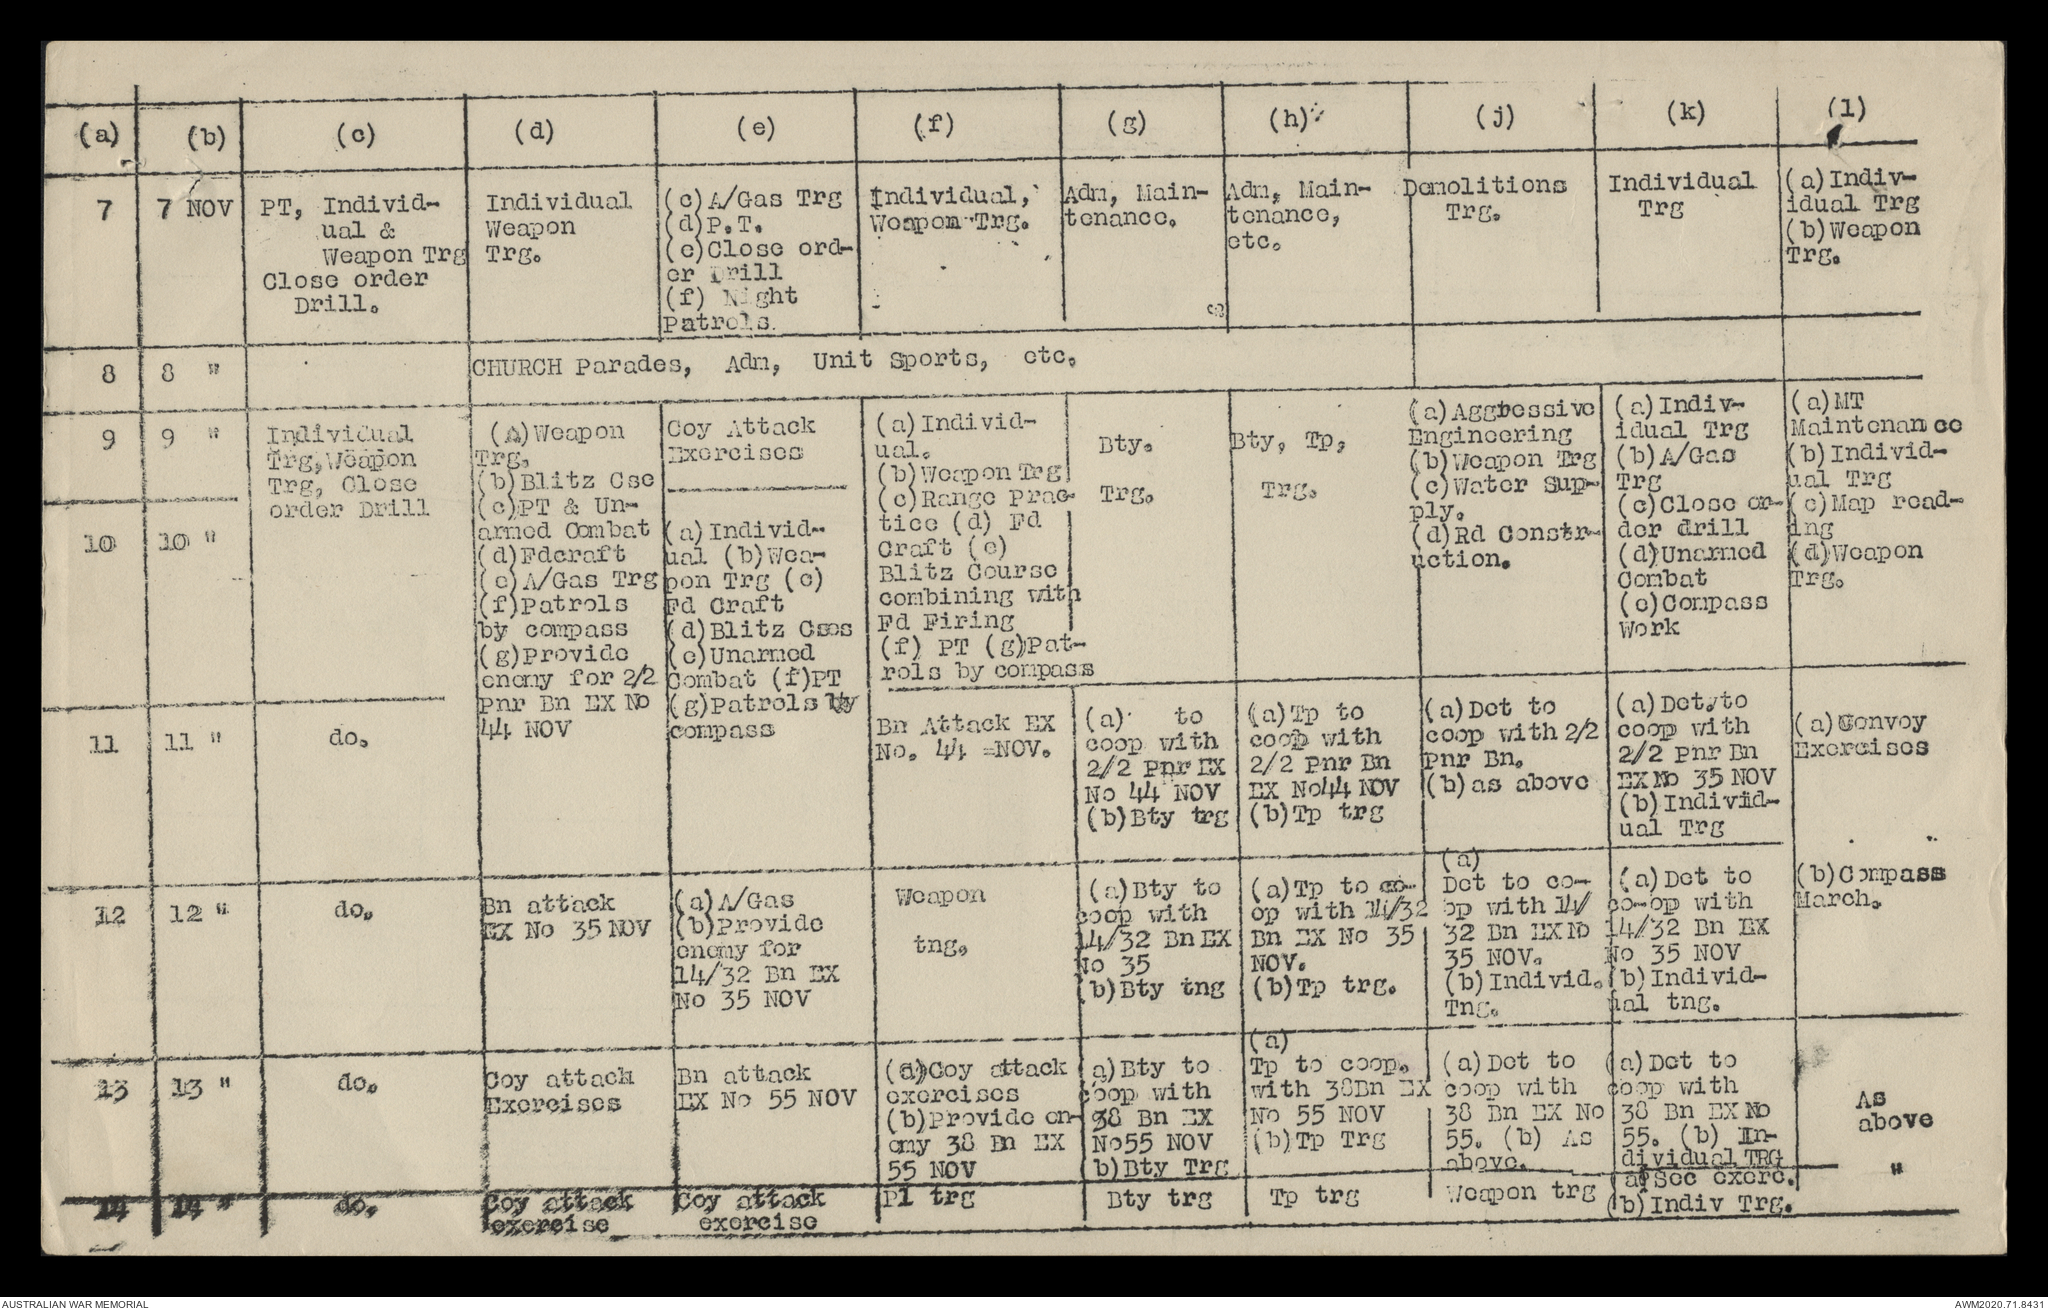 (a) (b) (c) (d) (e) (f) (g) (h) (j) (k) (l)
7
7 NOV
PT, Individ-
ual &
Weapon Trg
Close order
Drill.
Individual
Weapon
Trg.
(c)A/Gas Trg
(d)P.T.
(e)Close ord-
er Drill
(f) Night
Patrols
Individual,
Weapon Trg.
Adm, Main-
tenance.
Adm, Main-
tenance,
etc.
Demolitions
Trg.
Individual
Trg
(a)Indiv-
idual Trg
(b)Weapon
Trg.
8
8 "
CHURCH Parades, Adm, Unit Sports, etc.
9
9 "
10
10 "
Individual
Trg,Weapon
Trg, Close
order Drill
(A)Weapon
Trg.
(b)Blitz Cse
(c)PT & Un-
armed Combat
(d)Fdcraft
(e)A/Gas Trg
(f)Patrols
by compass
(g)Provide
enemy for 2/2
Pnr Bn EX No
44 NOV
Coy Attack
Exercises
(a)Individ-
ual (b)Wea-
pon Trg (c)
Fd Craft
(d)Blitz Cses
(e)Unarmed
Combat (f)PT
(g)Patrols by
compass
(a)Individ-
ual.
(b)Weapon Trg
(c)Range Prac-
tice (d) Fd
Craft (e)
Blitz Course
combining with
Fd Firing
(f) PT (g)Pat-
rols by compass
Bty.
Trg.
Bty, Tp,
Trg.
(a)Aggressive
Engineering
(b)Weapon Trg
(c)Water Sup-
ply.
(d)Rd Constr-
uction.
(a)Indiv-
idual Trg
(b)A/Gas
Trg
(c)Close or-
der drill
(d)Unarmed
Combat
(e)Compass
Work
(a)MT
Maintenance
(b)Individ-
ual Trg
(c)Map read-
ing
(d)Weapon
Trg.
11
11 "
do.
Bn Attack EX
No. 44 =NOV.
(a) to
coop with
2/2 Pnr EX
No 44 NOV
(b)Bty trg
(a)Tp to
coop with
2/2 Pnr Bn
EX No44 NOV
(b)Tp trg
(a)Det to
coop with 2/2
Pnr Bn.
(b)as above
(a)Det.to
coop with
2/2 Pnr Bn
EX No 35 NOV
(b)Individ-
ual Trg
(a)Convoy
Exercises
12
12 "
do.
Bn attack
EX No 35 NOV
(a)A/Gas
(b)Provide
enemy for
14/32 Bn EX
No 35 NOV
Weapon
tng.
(a)Bty to
coop with
14/32 Bn EX
No 35
(b)Bty tng
(a)Tp to co-
op with 14/32
Bn EX No 35
NOV.
(b)Tp trg.
(a)
Det to co-
op with 14/
32 Bn EX No
35 NOV.
(b)Individ.
Tng.
(a)Det to
co-op with
14/32 Bn EX
No 35 NOV
(b)Individ-
ual tng.
(b)Compass
March.
13
13 "
do.
Coy attack
Exercises
Bn attack
EX No 55 NOV
(a)Coy attack
exercises
(b)Provide en-
emy 38 Bn EX
55 NOV
a)Bty to
coop with
38 Bn EX
No55 NOV
b)Bty Trg
(a)
Tp to coop.
with 38Bn EX
No 55 NOV
(b)Tp Trg
(a)Det to
coop with
38 Bn EX No
55. (b) As
above.
(a)Det to
coop with
38 Bn EX No
55. (b) In-
dividual TRG
As
above
14
14 "
do.
Coy attack
exercise
Coy attack
exercise
Pl trg
Bty trg
Tp trg
Weapon trg
a)Sec exerc.
(b)Indiv Trg.
"
AUSTRALIAN WAR MEMORIAL
AWM2020.71.8431